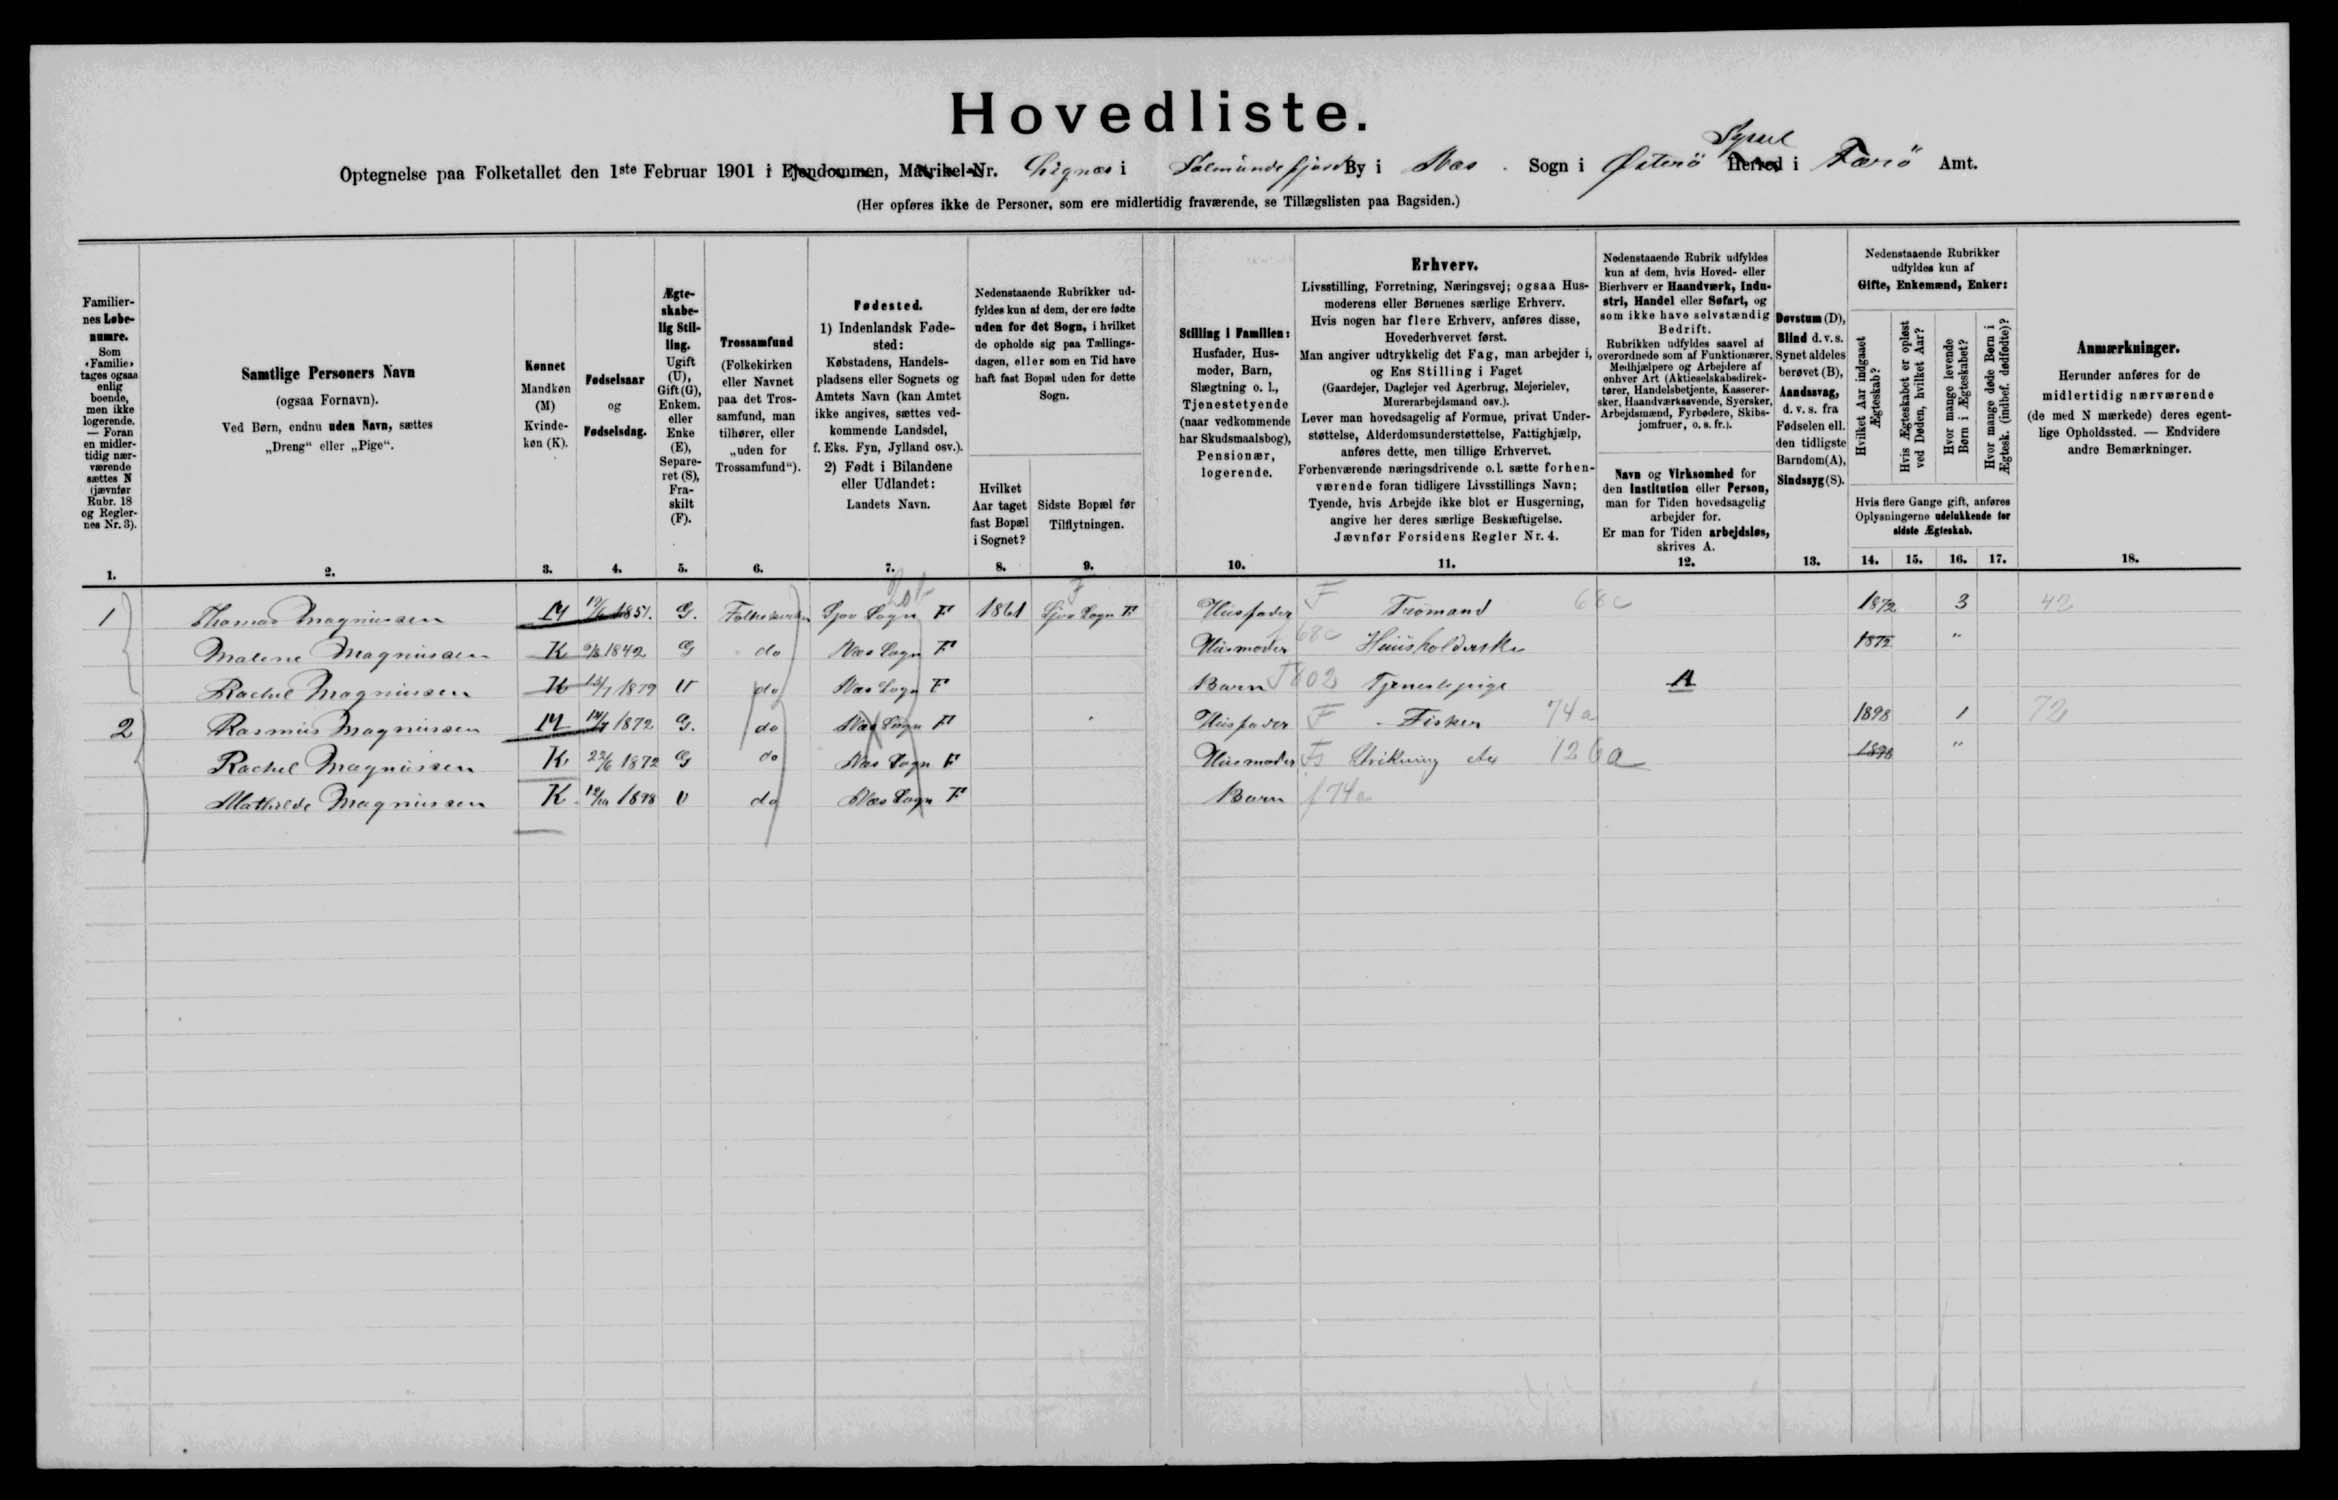 Hovedliste.
Syssel
Optegnelse paa Folketallet den 1ste Februar 1901 i Ejendommen, Matrikel-Nr. Lignæs i Salmundefjord By i Næs Sogn i Østerø Herred i Færø Amt.
(Her opføres ikke de Personer, som ere midlertidig fraværende, se Tillægslisten paa Bagsiden.)
Familier-
nes Løbe-
numre.
Som
‹Familie›
tages ogsaa
enlig
boende,
men ikke
logerende.
— Foran
en midler-
tidig nær-
værende
sættes N
(jævnfør
Rubr. 18
og Regler-
nes Nr. 3).
1.
Samtlige Personers Navn
(ogsaa Fornavn).
Ved Børn, endnu uden Navn, sættes
„Dreng“ eller „Pige“.
2.
Kønnet
Mandkøn
(M)
Kvinde-
køn (K).
3.
Fødselsaar
og
Fødselsdag.
4.
Ægte-
skabe-
lig Stil-
ling.
Ugift
(U),
Gift (G),
Enkem.
eller
Enke
(E),
Separe-
ret (S),
Fra-
skilt
(F).
5.
Trossamfund
(Folkekirken
eller Navnet
paa det Tros-
samfund, man
tilhører, eller
„uden for
Trossamfund“).
6.
Fødested.
1) Indenlandsk Føde-
sted:
Købstadens, Handels-
pladsens eller Sognets og
Amtets Navn (kan Amtet
ikke angives, sættes ved-
kommende Landsdel,
f. Eks. Fyn, Jylland osv.).
2) Født i Bilandene
eller Udlandet:
Landets Navn.
7.
Nedenstaaende Rubrikker ud-
fyldes kun af dem, der ere fødte
uden for det Sogn, i hvilket
de opholde sig paa Tællings-
dagen, eller som en Tid have
haft fast Bopæl uden for dette
Sogn.
Hvilket
Aar taget
fast Bopæl
i Sognet?
8.
Sidste Bopæl før
Tilflytningen.
9.
Stilling i Familien:
Husfader, Hus-
moder, Barn,
Slægtning o. l.,
Tjenestetyende
(naar vedkommende
har Skudsmaalsbog),
Pensionær,
logerende.
10.
Erhverv.
Livsstilling, Forretning, Næringsvej; ogsaa Hus-
moderens eller Børnenes særlige Erhverv.
Hvis nogen har flere Erhverv, anføres disse,
Hovederhvervet først.
Man angiver udtrykkelig det Fag, man arbejder i,
og Ens Stilling i Faget
(Gaardejer, Daglejer ved Agerbrug, Mejerielev,
Murerarbejdsmand osv.).
Lever man hovedsagelig af Formue, privat Under-
støttelse, Alderdomsunderstøttelse, Fattighjælp,
anføres dette, men tillige Erhvervet.
Forhenværende næringsdrivende o.l. sætte forhen-
værende foran tidligere Livsstillings Navn;
Tyende, hvis Arbejde ikke blot er Husgerning,
angive her deres særlige Beskæftigelse.
Jævnfør Forsidens Regler Nr. 4.
11.
Nedenstaaende Rubrik udfyldes
kun af dem, hvis Hoved- eller
Bierhverv er Haandværk, Indu-
stri, Handel eller Søfart, og
som ikke have selvstændig
Bedrift.
Rubrikken udfyldes saavel af
overordnede som af Funktionærer,
Medhjælpere og Arbejdere af
enhver Art (Aktieselskabsdirek-
tører, Handelsbetjente, Kasserer-
sker, Haandværkssvende, Syersker,
Arbejdsmænd, Fyrbødere, Skibs-
jomfruer, o. s. fr.).
Navn og Virksomhed for
den Institution eller Person,
man for Tiden hovedsagelig
arbejder for.
Er man for Tiden arbejdsløs,
skrives A.
12.
Døvstum (D),
Blind d. v. s.
Synet aldeles
berøvet (B),
Aandssvag,
d. v. s. fra
Fødselen ell.
den tidligste
Barndom(A),
Sindssyg (S).
13.
Nedenstaaende Rubrikker
udfyldes kun af
Gifte, Enkemænd, Enker:
Hvilket Aar indgaaet
Ægteskab?
Hvis Ægteskabet er opløst
ved Døden, hvilket Aar?
Hvor mange levende
Børn i Ægteskabet?
Hvor mange døde Børn i
Ægtesk. (indbef. dødfødte)?
Hvis flere Gange gift, anføres
Oplysningerne udelukkende for
sidste Ægteskab.
14. 15. 16. 17.
Anmærkninger.
Herunder anføres for de
midlertidig nærværende
(de med N mærkede) deres egent-
lige Opholdssted. — Endvidere
andre Bemærkninger.
18.
1 Thomas Magnussen M 1851. G. Folkekirken Sjov Sogn F 1861 Sjov Sogn F Husfader F 68c 1872 3 42
Malene Magnussen K 1842 G do Næs Sogn F Husmoder f 68c Huusholderske 1872 "
Rachel Magnussen K 1879 U do Næs Sogn F Barn T802 Tjenestepige A
2 Rasmus Magnussen M 1872 G. do Næs Sogn F Husfader F - Fisker 74a 1898 1 72
Rachel Magnussen K 22/6 1872 G do Næs Sogn F Husmoder Fs Strikning 126a 1898 "
Mathilde Magnussen K 1898 U do Næs Sogn F Barn f74a